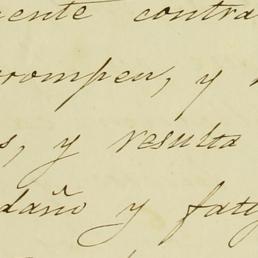 mente contra
rrompen, y
s, y resulta
daño y